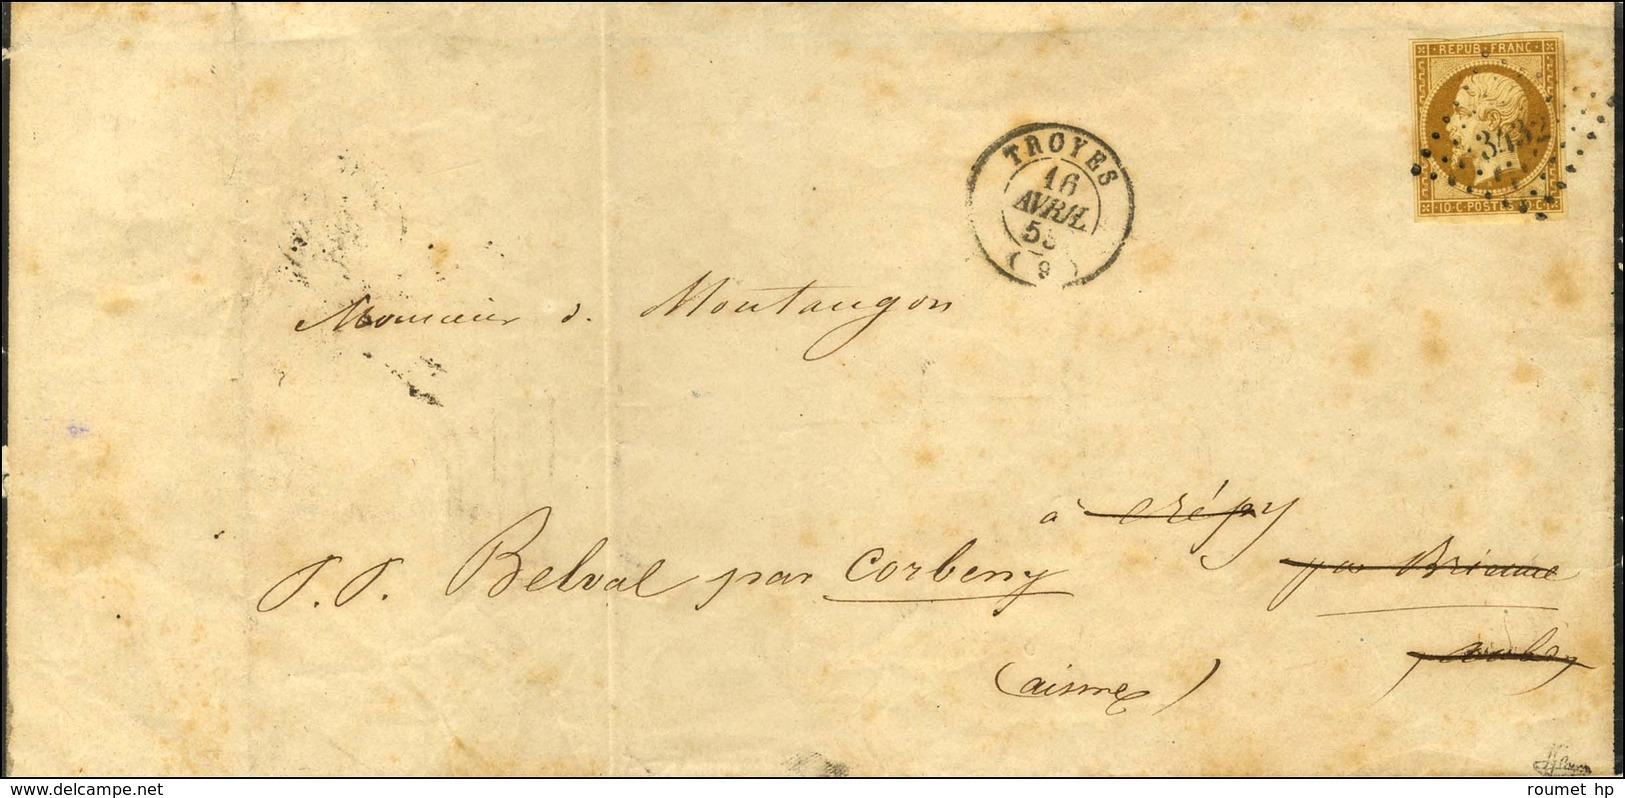 REPUB. FRANC.
3432
10 C. POSTES 10 C.
TROYES
16
AVRIL
(9)
Monsieur d. Montaugon
à Crépy
p.p. Belval par Corbeny par Brienne
(aisne)
delcampe.net
roumet hp